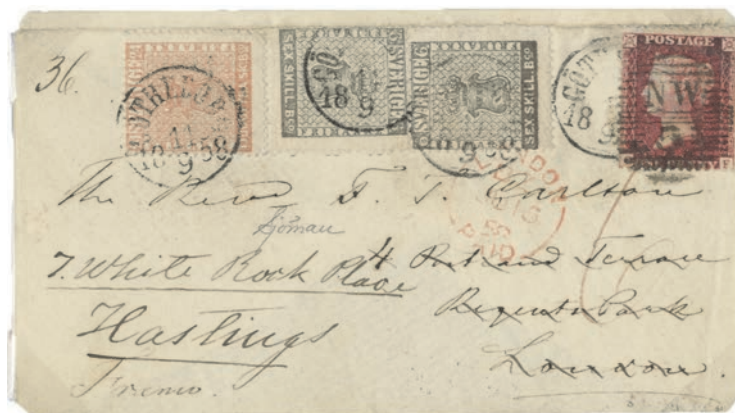 36.
SVERIGE
SEX SKILL. Bco
SVERIGE 6
SEX SKILL. Bco
POSTAGE
GÖTHEBORG
11
18 9 58
11
18 9
18 9 58
GÖT
18 9
NW
LONDON
PAID
The Revd F. T. Carlton
7. White Rock Place
4 Portland Terrace
Regents Park
Hastings
London.
Franco.